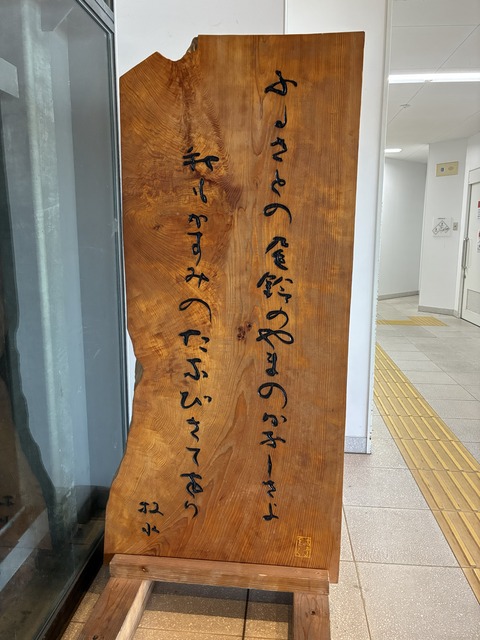 ふるさとの尾鈴のやまのかなしさよ
秋もかすみのたなびきて居り
牧水